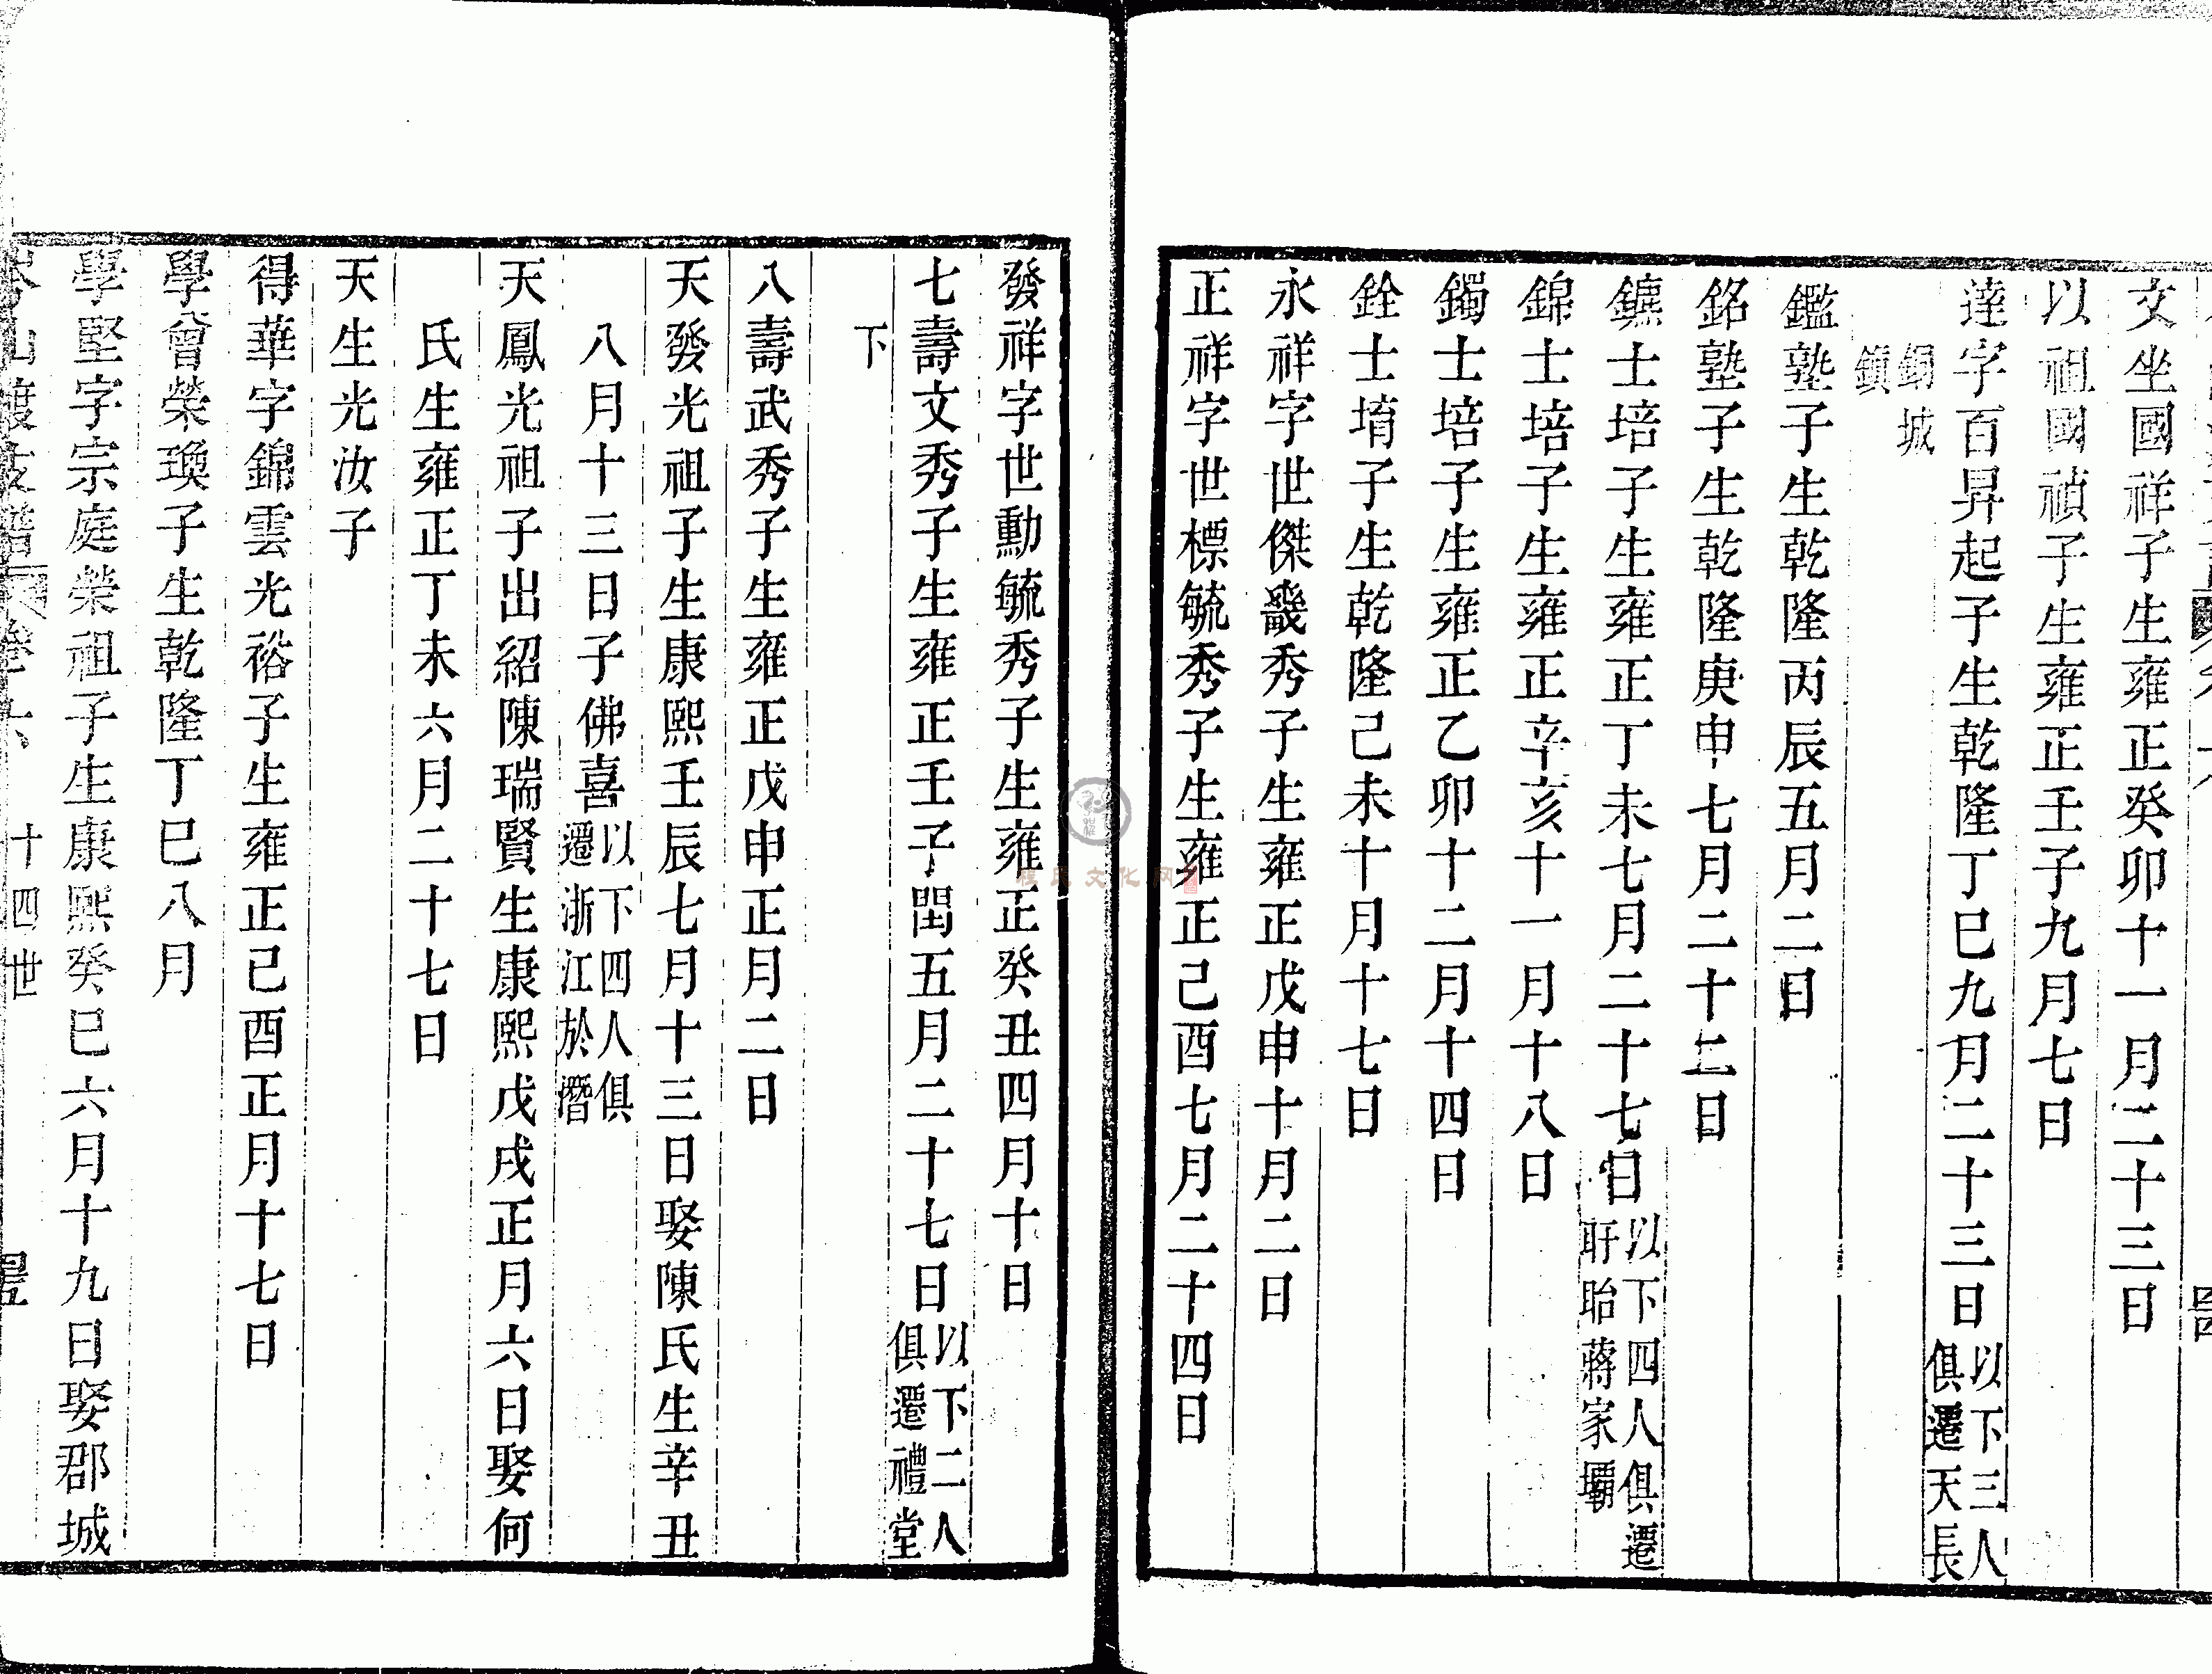 文坐國祥子生雍正癸卯十一月二十三日
以祖國禎子生雍正壬子九月七日
達字百昇起子生乾隆丁巳九月二十三日以下三人俱遷天長
銅城鎮
鑑塾子生乾隆丙辰五月二日
銘塾子生乾隆庚申七月二十二日
鑣士培子生雍正丁未七月二十七日以下四人俱遷盱眙蔣家壩
錦士培子生雍正辛亥十一月十八日
鐲士培子生雍正乙卯十二月十四日
銓士堉子生乾隆己未十月十七日
永祥字世傑毓秀子生雍正戊申十月二日
正祥字世標毓秀子生雍正己酉七月二十四日
發祥字世勳毓秀子生雍正癸丑四月十日
七壽文秀子生雍正壬子閏五月二十七日以下二人俱遷禮堂
下
八壽武秀子生雍正戊申正月二日
天發光祖子生康熙壬辰七月十三日娶陳氏生辛丑
八月十三日子佛喜以下四人俱遷浙江於潛
天鳳光祖子出紹陳瑞賢生康熙戊戌正月六日娶何
氏生雍正丁未六月二十七日
天生光汝子
得華字錦雲光裕子生雍正己酉正月十七日
學曾榮瓊子生乾隆丁巳八月
學堅字宗庭榮祖子生康熙癸巳六月十九日娶郡城
十四世